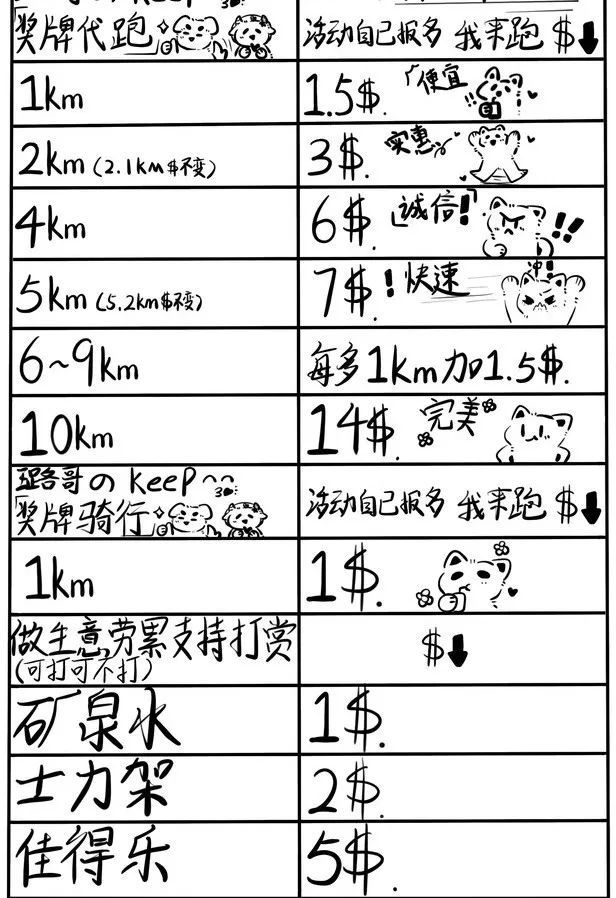 Keep
「奖牌代跑」
活动自己报名 我来跑 $⬇
1km
1.5$.
「便宜
!!
2km(2.1km$不变)
3$.
实惠
4km
6$.
「诚信!」
!!
5km(5.2km$不变)
7$.
! 快速
冲!
6~9km
每多1km加1.5$.
10km
14$.
完美
路哥の Keep~~
「奖牌骑行」
活动自己报名 我来跑 $⬇
1km
1$.
做生意劳累支持打赏
(可打可不打)
$⬇
矿泉水
1$.
士力架
2$.
佳得乐
5$.